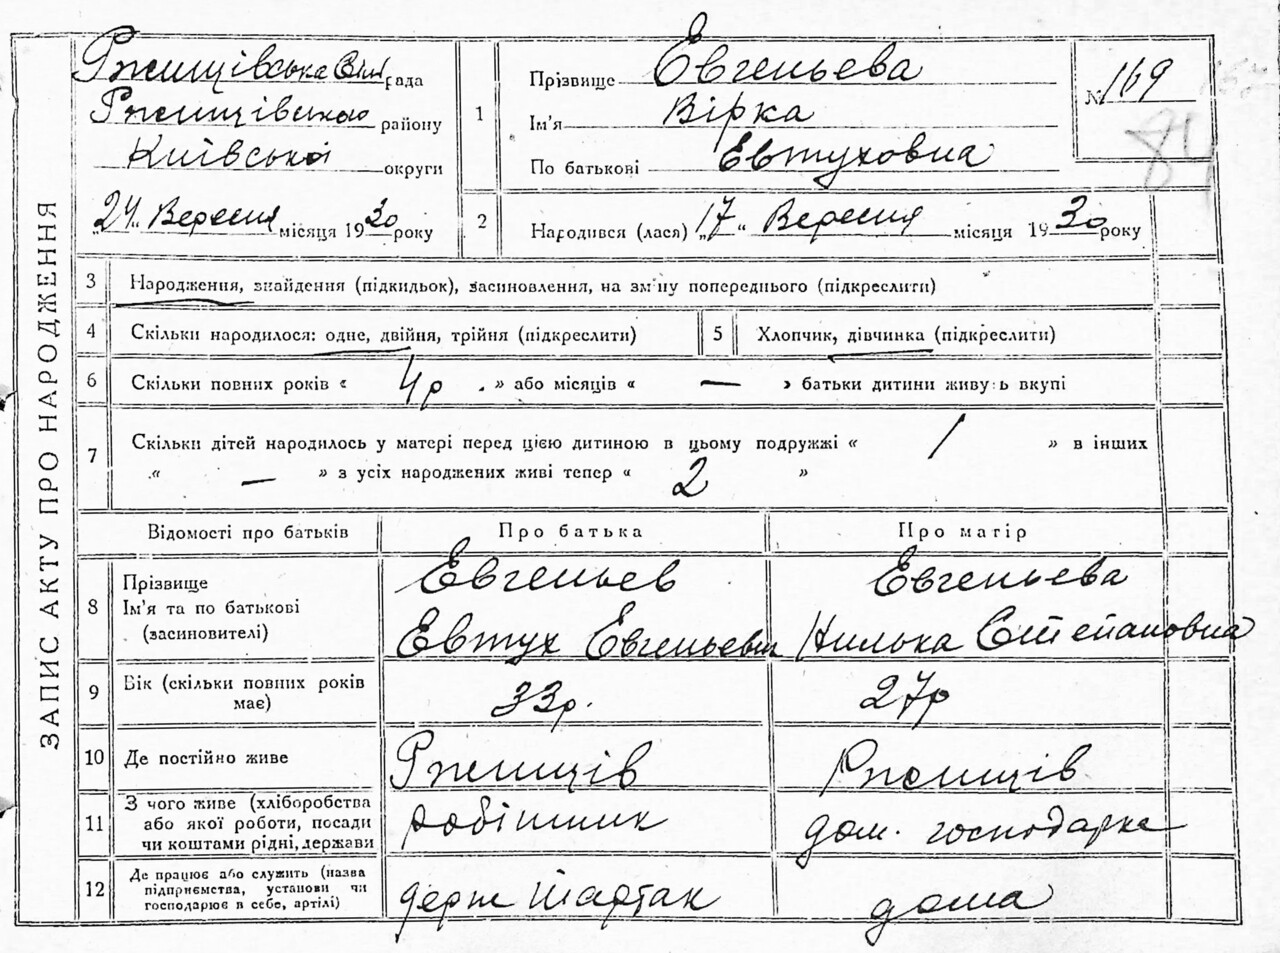 ЗАПИС АКТУ ПРО НАРОДЖЕННЯ
Ржищівська рада
Ржищівського району
Київської округи
„24" Вересня місяця 1930 року
1
Прізвище Евгеньева
Ім'я Вірка
По батькові Евтуховна
№ 169
84
2
Народився (лася) „17" Вересня місяця 1930 року
3 Народження, знайдення (підкидьок), засиновлення, на зміну попереднього (підкреслити)
4 Скільки народилося: одне, двійня, трійня (підкреслити)
5 Хлопчик, дівчинка (підкреслити)
6 Скільки повних років « 4р. » або місяців « — » батьки дитини живуть вкупі
7 Скільки дітей народилось у матері перед цією дитиною в цьому подружжі « 1 » в інших
« — » з усіх народжених живі тепер « 2 »
Відомості про батьків Про батька Про матір
8 Прізвище
Ім'я та по батькові
(засиновителі)
Евгеньев
Евтух Евгеньевич
Евгеньева
Нилька Степановна
9 Вік (скільки повних років
має)
33р.
27р
10 Де постійно живе Ржищів Ржищів
11 З чого живе (хліборобства
або якої роботи, посади
чи коштами рідні, держави
робітник
дом. господарка
12 Де працює або служить (назва
підприємства, установи чи
господарює в себе, артілі)
держ
дома